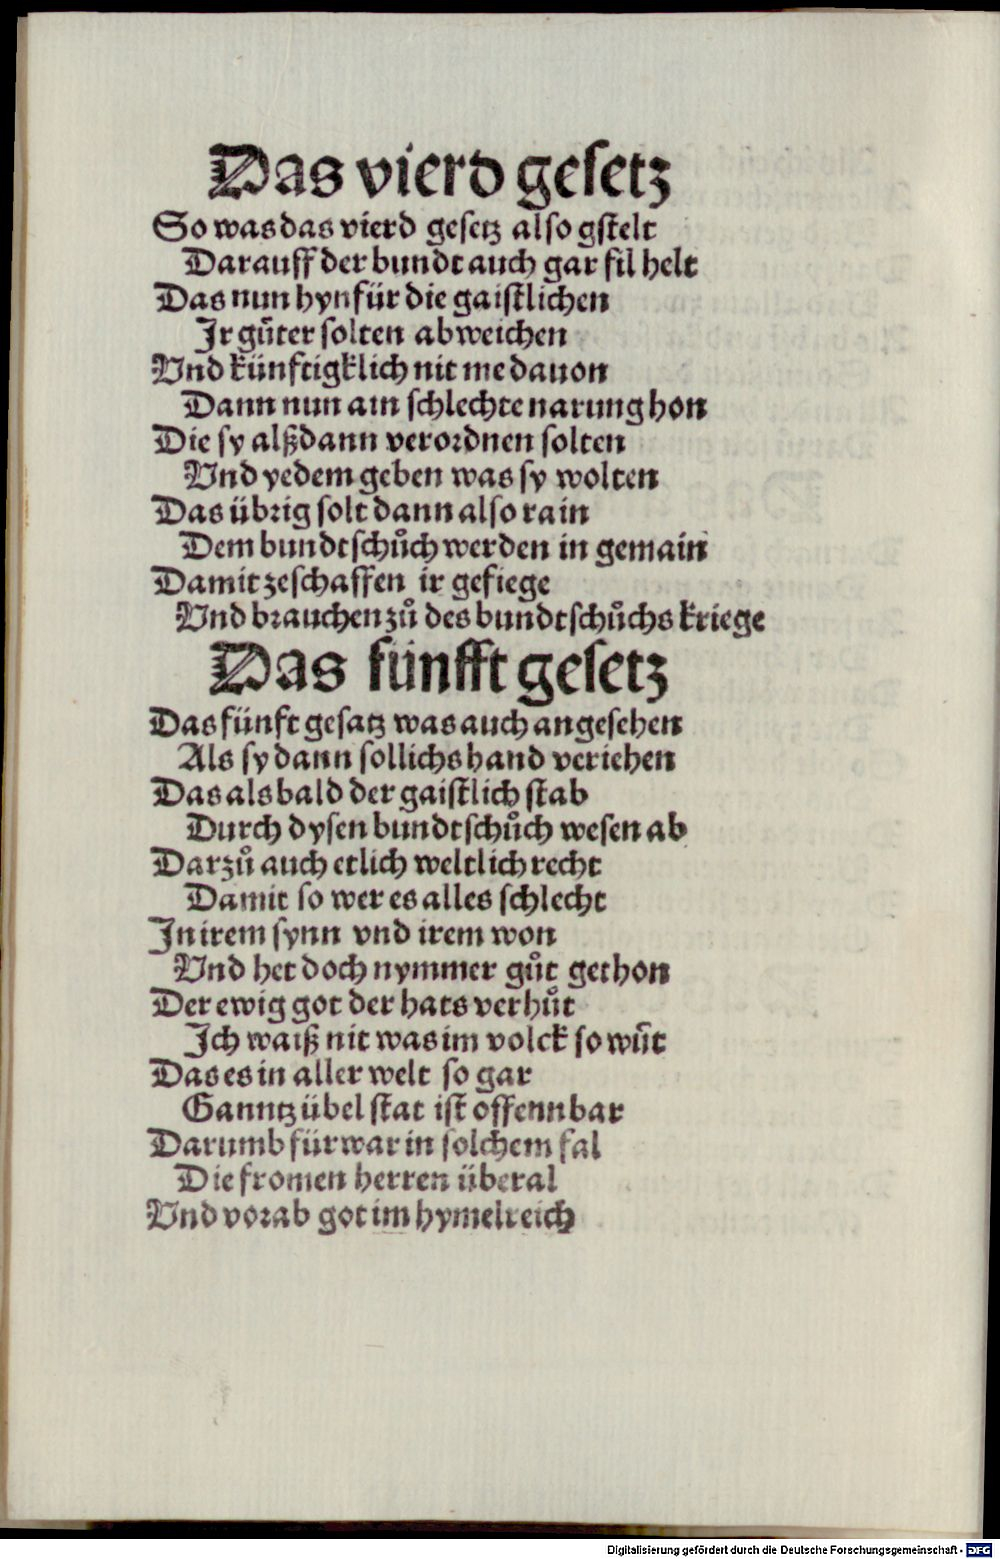 Das vierd gesetz
So was das vierd gesetz also gstelt
Darauff der bundt auch gar fil helt
Das nun hynfür die gaistlichen
Ir gůter solten abweichen
Vnd künftigklich nit me dauon
Dann nun ain schlechte narung hon
Die sy alßdann verordnen solten
Vnd yedem geben was sy wolten
Das übrig solt dann also rain
Dem bundtschůch werden in gemain
Damit zeschaffen ir gefiege
Vnd brauchen zů des bundtschůchs kriege
Das fünfft gesetz
Das fünft gesatz was auch angesehen
Als sy dann sollichs hand veriehen
Das als bald der gaistlich stab
Durch dysen bundtschůch wesen ab
Darzů auch etlich weltlich recht
Damit so wer es alles schlecht
In irem synn vnd irem won
Vnd het doch nymmer gůt gethon
Der ewig got der hats verhůt
Ich waiß nit was im volck so wůt
Das es in aller welt so gar
Ganntz übel stat ist offennbar
Darumb fürwar in solchem fal
Die fromen herren überal
Vnd vorab got im hymelreich
Digitalisierung gefördert durch die Deutsche Forschungsgemeinschaft - DFG